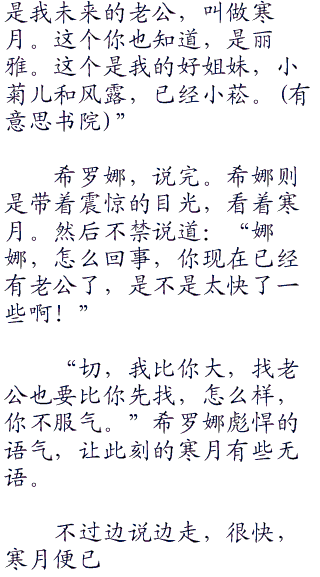 是我未来的老公，叫做寒
月。这个你也知道，是丽
雅。这个是我的好姐妹，小
菊儿和风露，已经小菘。(有
意思书院)”
希罗娜，说完。希娜则
是带着震惊的目光，看着寒
月。然后不禁说道：“娜
娜，怎么回事，你现在已经
有老公了，是不是太快了一
些啊！”
“切，我比你大，找老
公也要比你先找，怎么样，
你不服气。”希罗娜彪悍的
语气，让此刻的寒月有些无
语。
不过边说边走，很快，
寒月便已